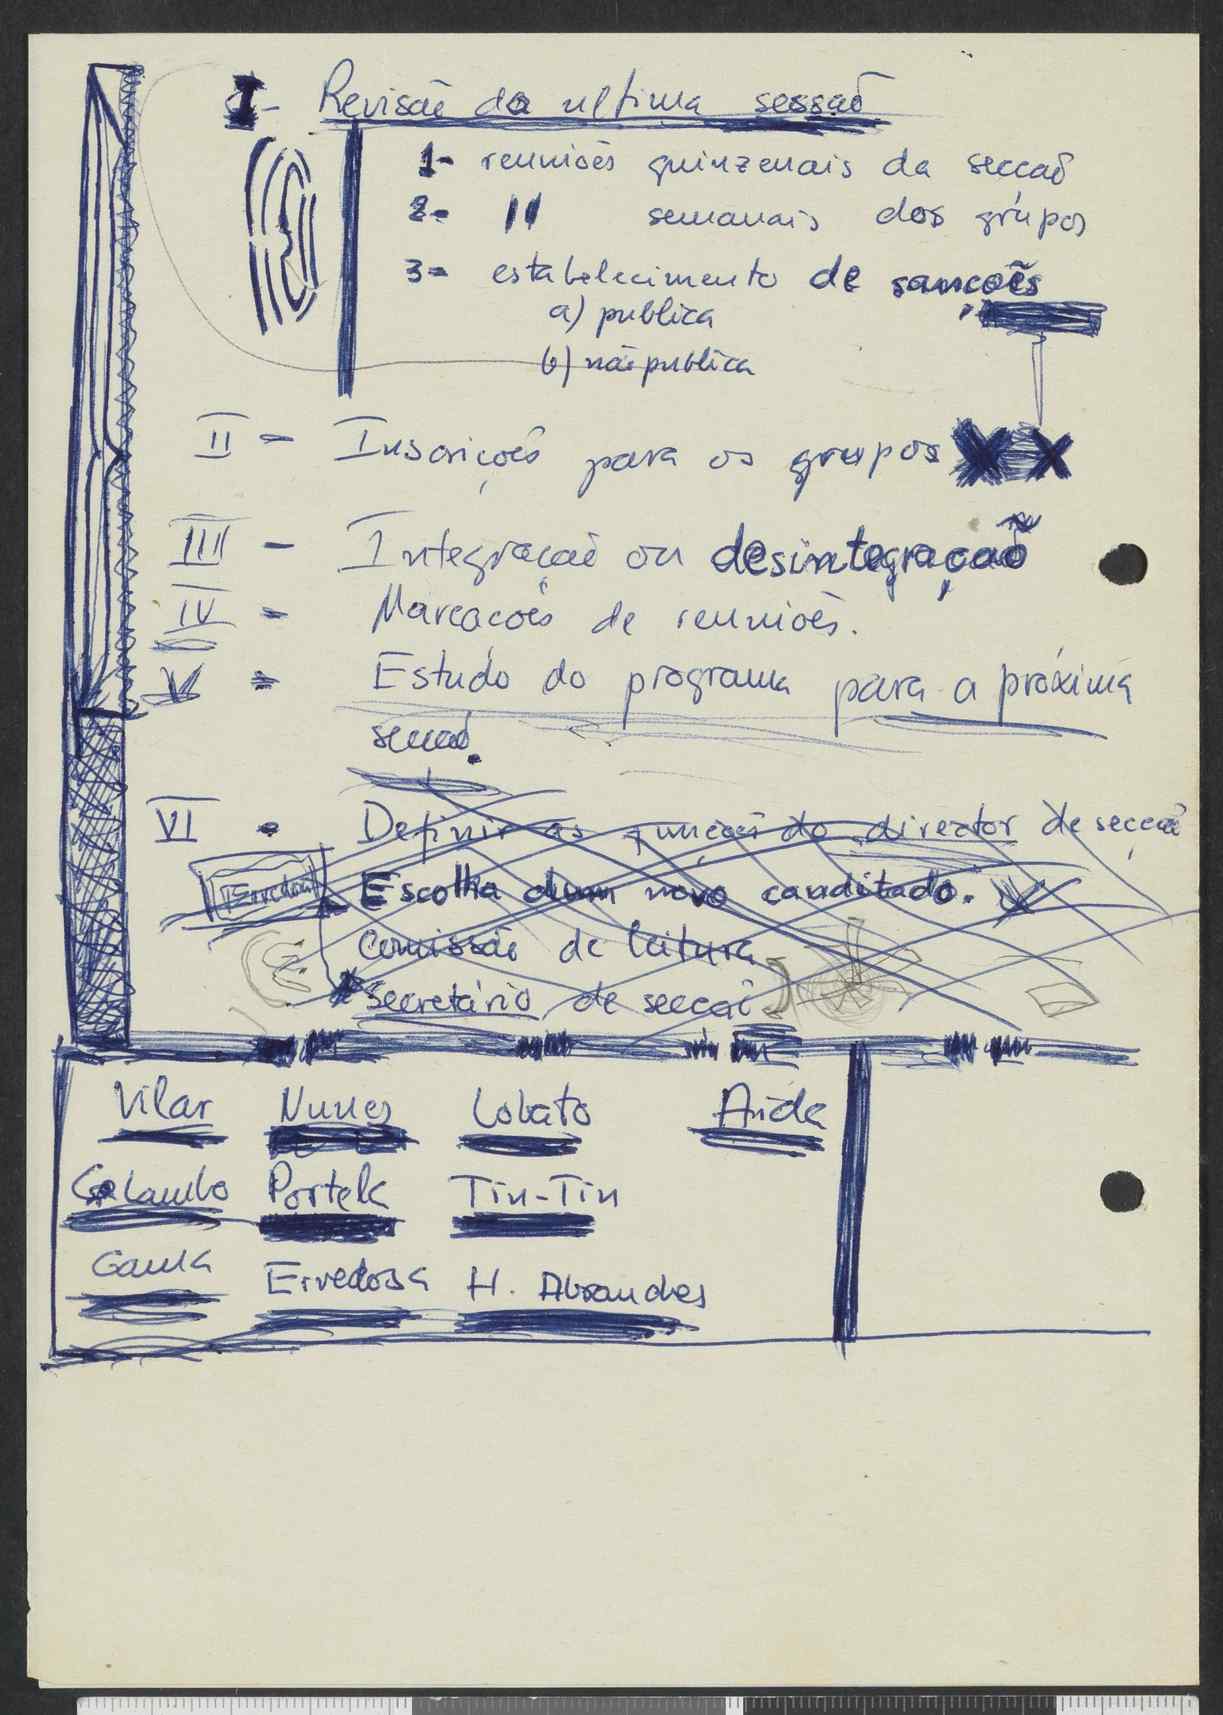 I - Revisão da ultima sessaõ
1- reunioẽs quinzenais da seccaõ
2- " semanais dos grúpos
3- estabelecimento de sancoẽs
a) publica
b) não publica
II - Inscriçoẽs para os grupos
III - Integraçaõ ou desintegraçaõ
IV - Marcacoẽs de reunioẽs.
V - Estudo do programa para a próxima
seccaõ.
VI - Definir as funçoẽs do director de secçaõ
Ervedosa Escolha dum novo canditado.
Comissão de leitura
Secretário de seccaõ
Vilar Nunes Lobato Aida
Calambo Portela Tin-Tin
Gama Ervedosa H. Abranches